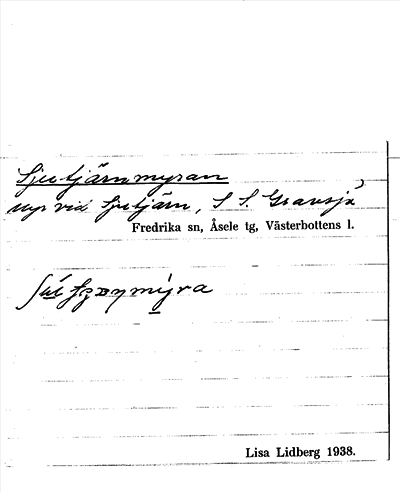 Sjutjärnmyran
myr vid Sjutjärn, S S. Gransjö
Fredrika sn, Åsele tg, Västerbottens l.
Lisa Lidberg 1938.